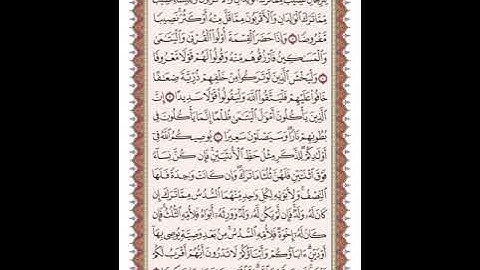 مِّمَّا تَرَكَ الْوَالِدَانِ وَالْأَقْرَبُونَ مِمَّا قَلَّ مِنْهُ أَوْ كَثُرَ نَصِيبًا
مَّفْرُوضًا ۝٧ وَإِذَا حَضَرَ الْقِسْمَةَ أُولُوا الْقُرْبَىٰ وَالْيَتَامَىٰ
وَالْمَسَاكِينُ فَارْزُقُوهُم مِّنْهُ وَقُولُوا لَهُمْ قَوْلًا مَّعْرُوفًا
۝٨ وَلْيَخْشَ الَّذِينَ لَوْ تَرَكُوا مِنْ خَلْفِهِمْ ذُرِّيَّةً ضِعَافًا
خَافُوا عَلَيْهِمْ فَلْيَتَّقُوا اللَّهَ وَلْيَقُولُوا قَوْلًا سَدِيدًا ۝٩ إِنَّ
الَّذِينَ يَأْكُلُونَ أَمْوَالَ الْيَتَامَىٰ ظُلْمًا إِنَّمَا يَأْكُلُونَ فِي
بُطُونِهِمْ نَارًا ۖ وَسَيَصْلَوْنَ سَعِيرًا ۝١٠ يُوصِيكُمُ اللَّهُ فِي
أَوْلَادِكُمْ ۖ لِلذَّكَرِ مِثْلُ حَظِّ الْأُنثَيَيْنِ ۚ فَإِن كُنَّ نِسَاءً
فَوْقَ اثْنَتَيْنِ فَلَهُنَّ ثُلُثَا مَا تَرَكَ ۖ وَإِن كَانَتْ وَاحِدَةً فَلَهَا
النِّصْفُ ۚ وَلِأَبَوَيْهِ لِكُلِّ وَاحِدٍ مِّنْهُمَا السُّدُسُ مِمَّا تَرَكَ إِن
كَانَ لَهُ وَلَدٌ ۚ فَإِن لَّمْ يَكُن لَّهُ وَلَدٌ وَوَرِثَهُ أَبَوَاهُ فَلِأُمِّهِ الثُّلُثُ ۚ فَإِن
كَانَ لَهُ إِخْوَةٌ فَلِأُمِّهِ السُّدُسُ ۚ مِن بَعْدِ وَصِيَّةٍ يُوصِي بِهَا
أَوْ دَيْنٍ ۗ آبَاؤُكُمْ وَأَبْنَاؤُكُمْ لَا تَدْرُونَ أَيُّهُمْ أَقْرَبُ لَكُمْ